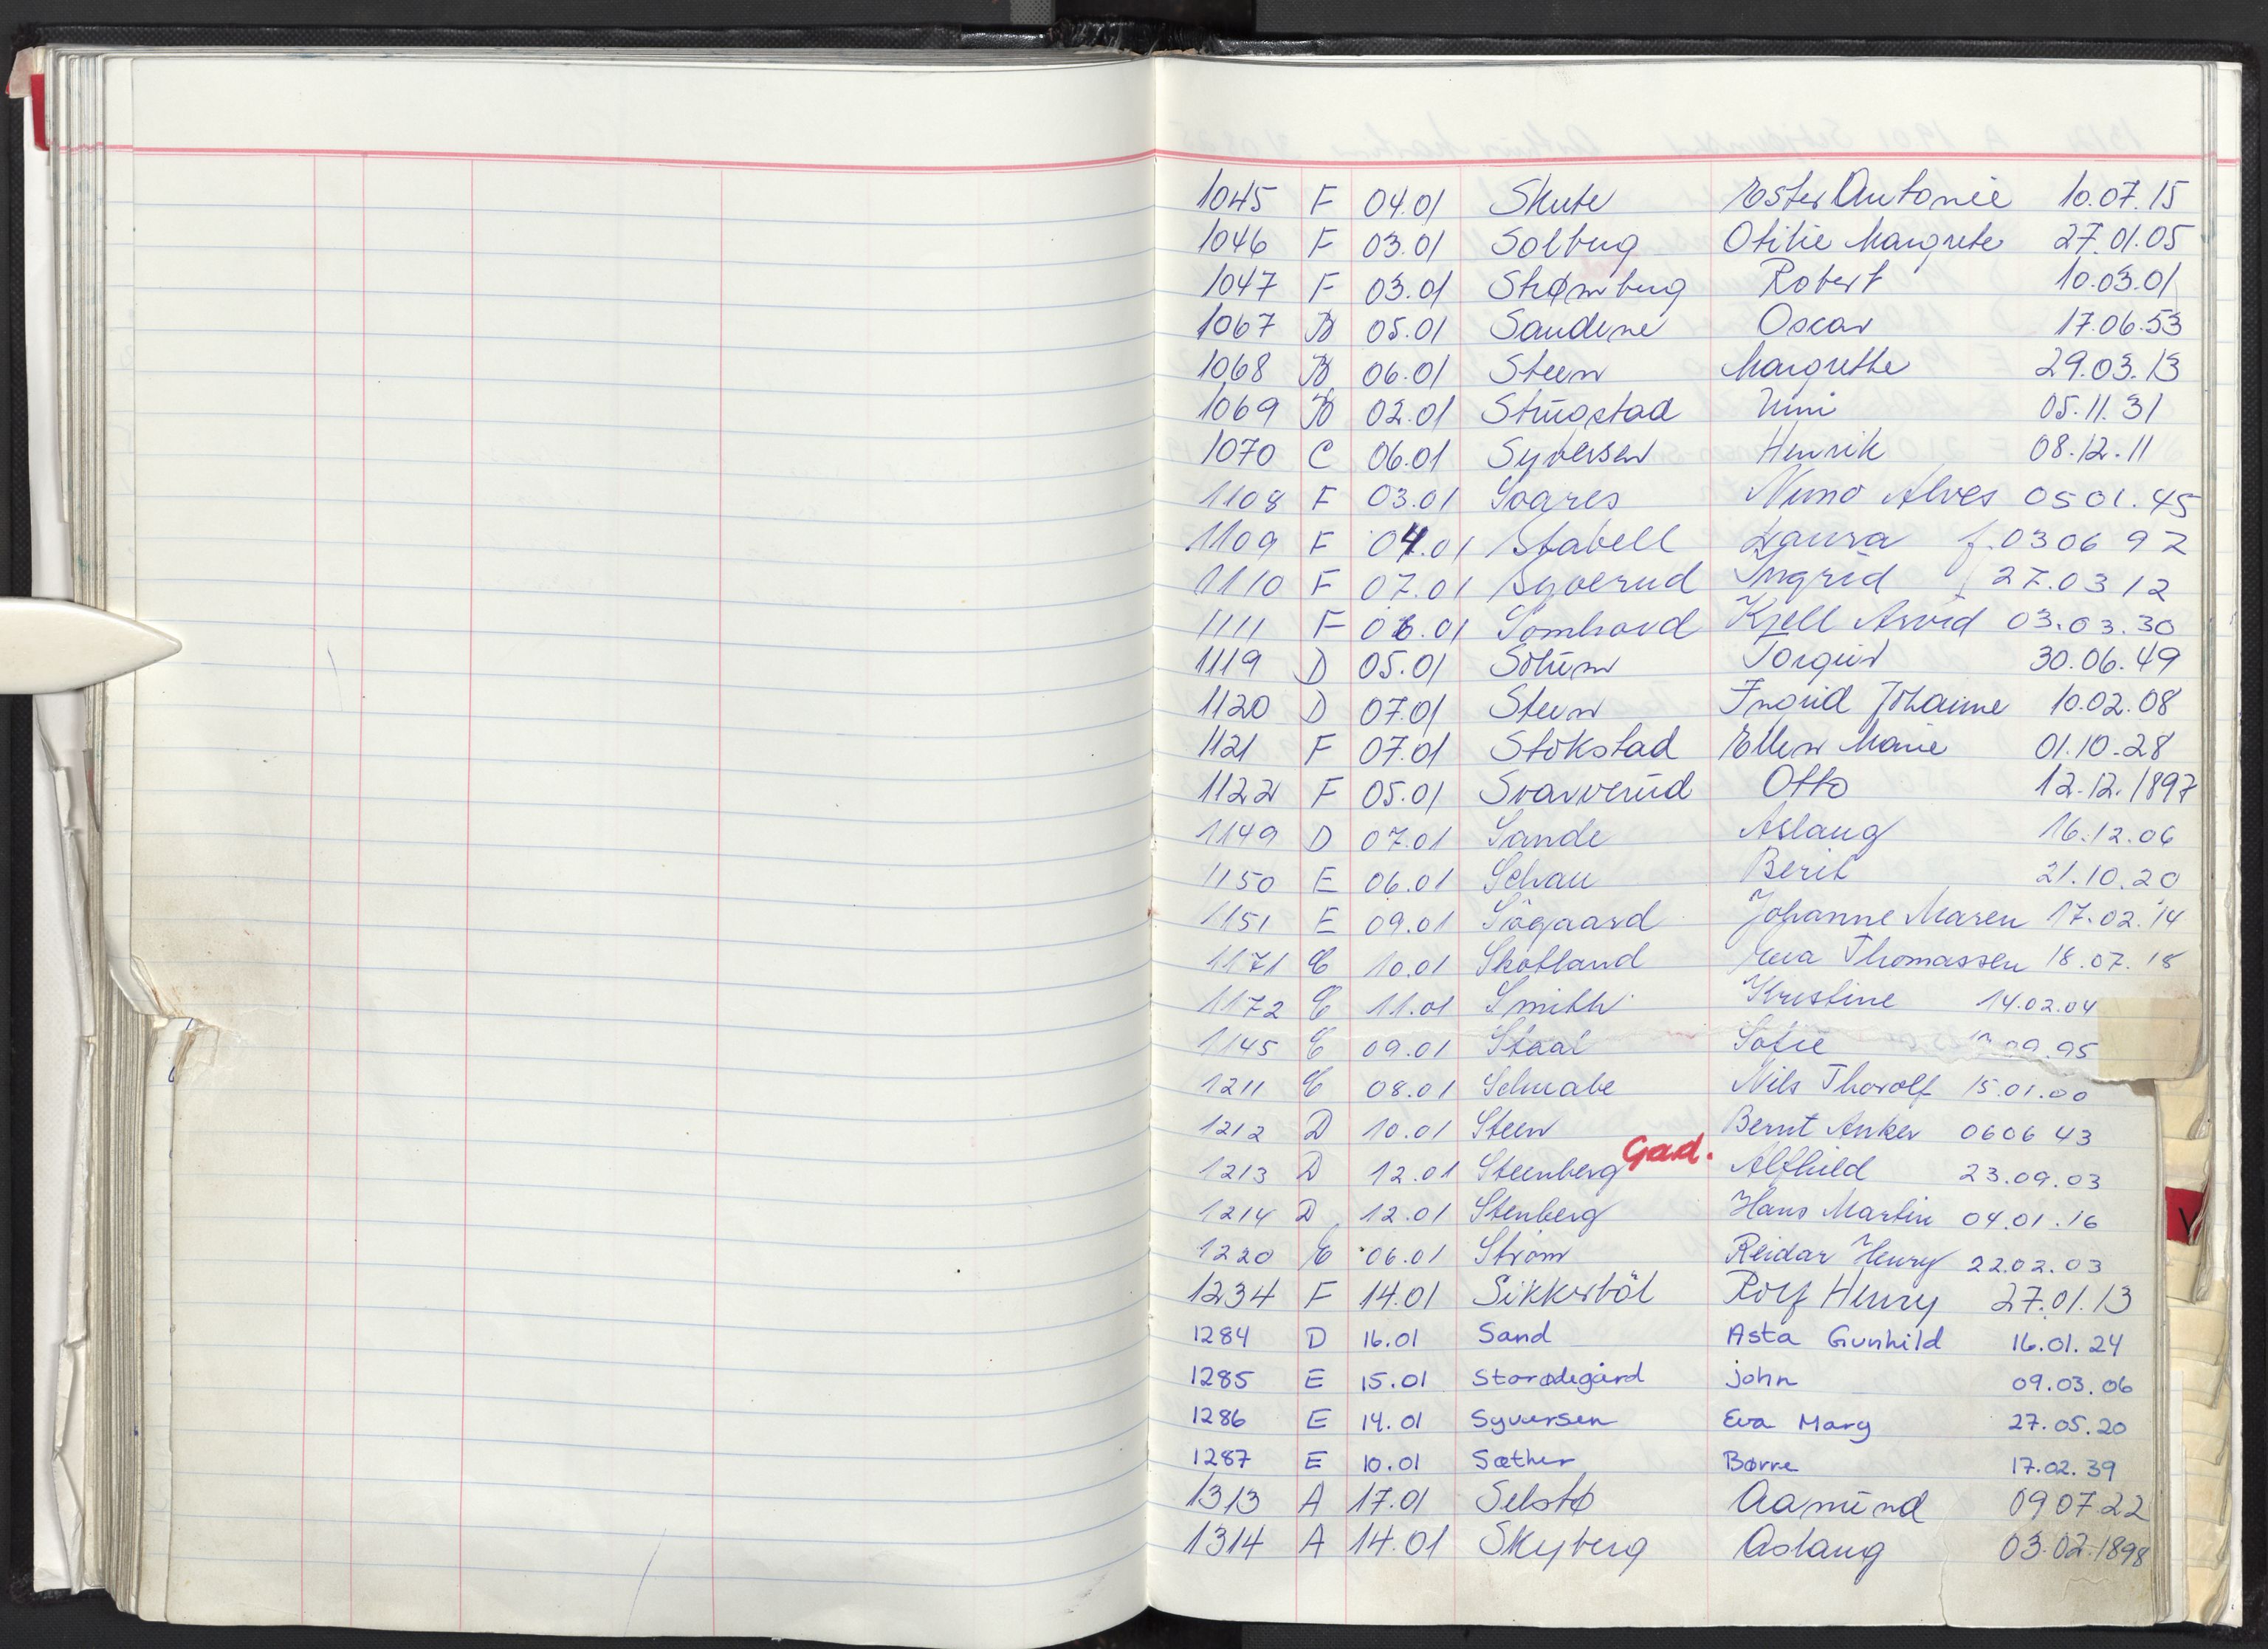 1045 F 04.01 Skute Ester Antonie 10.07.15
1046 F 03.01 Solberg Otilie Margrete 27.01.05
1047 F 03.01 Strømberg Robert 10.03.01
1067 B 05.01 Sandene Oscar 17.06.53
1068 B 06.01 Steen Margrethe 29.03.13
1069 B 02.01 Strugstad Unni 05.11.31
1070 C 06.01 Syversen Henrik 08.12.11
1108 F 03.01 Soares Nuno Alves 0501.45
1109 F 04.01 Stabell Laura f.0306 92
1110 F 07.01 Syverud Ingrid 27.03 12
1111 F 06.01 Somhovd Kjell Arvid 03.03.30
1119 D 05.01 Solum Torgeir 30.06.49
1120 D 07.01 Steen Ingrid Johanne 10.02.08
1121 F 07.01 Stokstad Ellen Marie 01.10.28
1122 F 05.01 Svarverud Otto 12.12.1897
1149 D 07.01 Sande Aslaug 16.12.06
1150 E 06.01 Schau Berit 21.10.20
1151 E 09.01 Sögaard Johanne Maren 17.02.14
1171 C 10.01 Skotland Eva Thomassen 18.07.18
1172 C 11.01 Smith Kristine 14.02.04
1145 C 09.01 Staal Sofie 09.95
1211 C 08.01 Schwabe Nils Thorolf 15.01.00
1212 D 10.01 Steen Bernt Anker 0606 43
1213 D 12.01 Steenberg Gad. Alfhild 23.09.03
1214 D 12.01 Stenberg Hans Martin 04.01.16
1220 C 06.01 Ström Reidar Henry 22.02.03
1234 F 14.01 Sikkerböl Rolf Henry 27.01.13
1284 D 16.01 Sand Asta Gunhild 16.01.24
1285 E 15.01 Storødegård john 09.03.06
1286 E 14.01 Syversen Eva Marg 27.05.20
1287 E 10.01 Sæther Børre 17.02.39
1313 A 17.01 Selstø Aamund 0907.22
1314 A 14.01 Skyberg Aslaug 03.02.1898